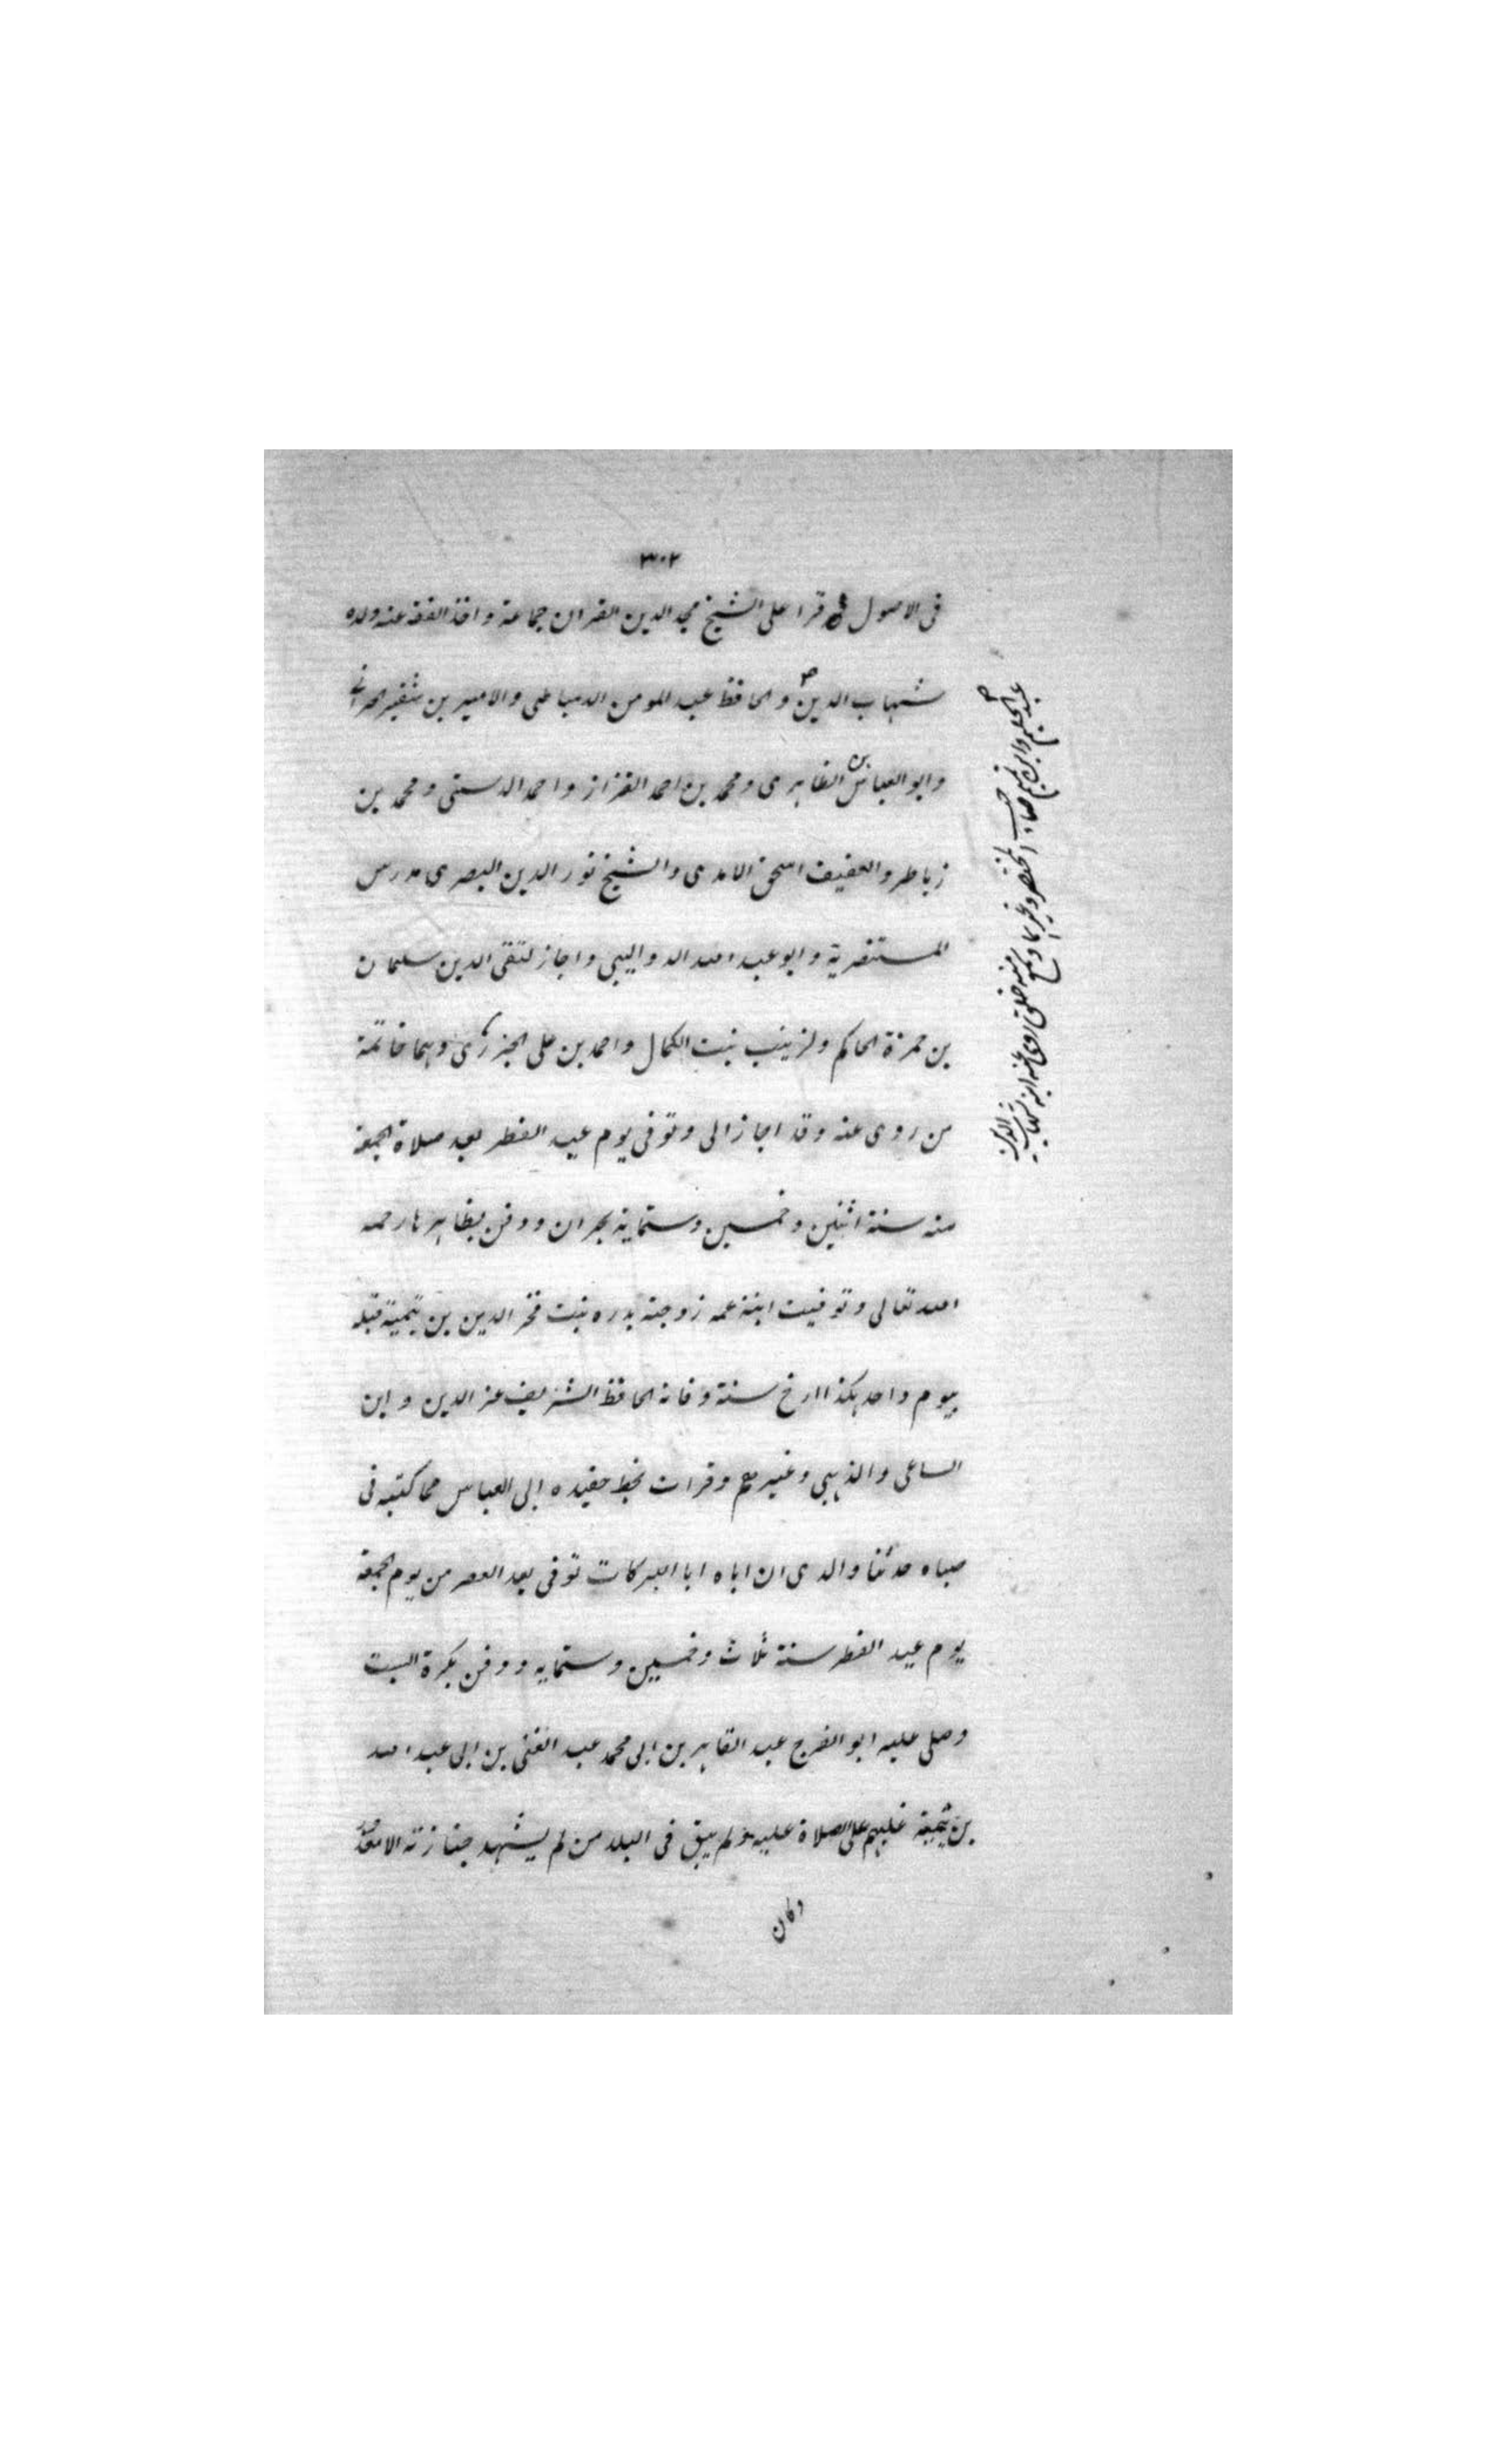 ٣٠٢
فى الاصول قرا على الشيخ مجد الدين القران جماعة واخذ الفقه عنه ولده
شهاب الدين والحافظ عبد المومن الدمياطى والامير بن شقير الحرانى
وابو العباس بن الظاهرى ومحمد بن احمد القزاز واحمد الدستى ومحمد بن
زباطر والعفيف اسحق الامدى والشيخ نور الدين البصرى مدرس
المستنصرية وابو عبد الله الدواليبى واجاز لتقى الدين سليمان
بن حمزة الحاكم ولزينب بنت الكمال واحمد بن على الجزرى وهما خاتمة
من روى عنه وقد اجازالى وتوفى يوم عيد الفطر بعد صلاة الجمعة
منه سنة اثنين وخمسين وستماية بحران ودفن بظاهرها رحمه
الله تعالى وتوفيت ابنة عمه زوجته بدره بنت فخر الدين بن تيمية قبله
بيوم واحد هكذا ارخ سنة وفاته الحافظ الشريف عز الدين وابن
الساعى والذهبى وغيرهم وقرات بخط حفيده ابى العباس مما كتبه فى
صباه حدثنا والدى ان اباه ابا البركات توفى بعد العصر من يوم الجمعة
يوم عيد الفطر سنة ثلاث وخمسين وستمايه ودفن بكرة السبت
وصلى عليه ابو الفرج عبد القاهر بن ابى محمد عبد الغنى بن ابى عبد الله
بن تيمية غلبهم على الصلاة عليه ولم يبق فى البلد من لم يشهد جنازته الا معذور
وكان
عبد الحليم وابن تميم صاحب المختصر وغيرهما وسمع
منه خلق روى عنه ابنه شهاب الدين